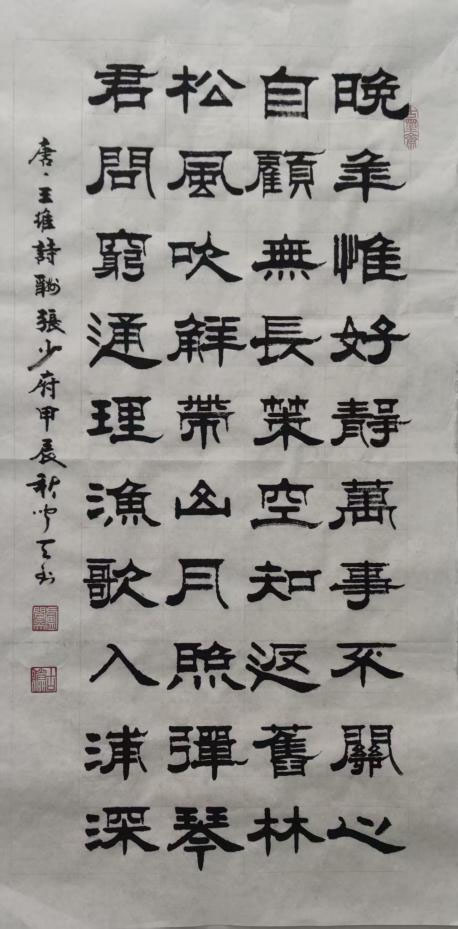 晚年惟好靜萬事不關心
自顧無長策空知返舊林
松風吹解帶山月照彈琴
君問窮通理漁歌入浦深
唐·王維詩酬張少府甲辰秋